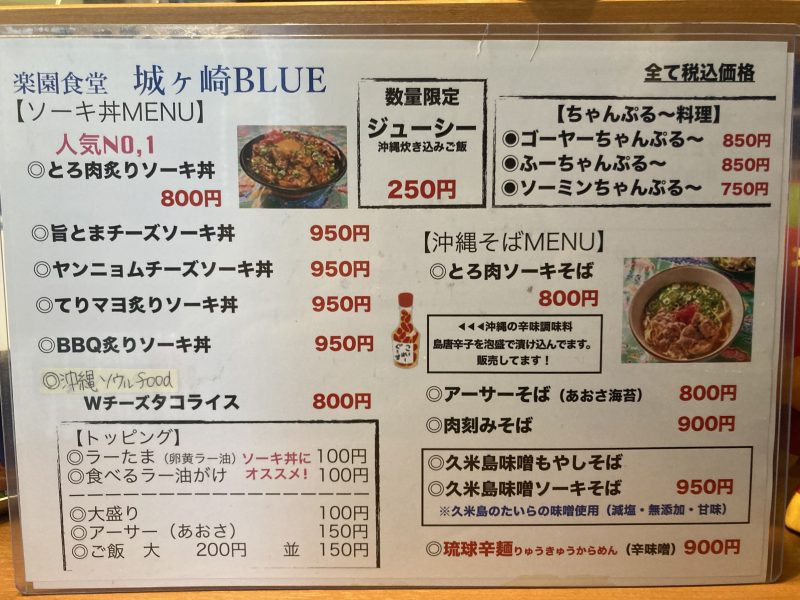 楽園食堂 城ヶ崎BLUE
【ソーキ丼MENU】
人気NO,1
◎とろ肉炙りソーキ丼
800円
◎旨とまチーズソーキ丼 950円
◎ヤンニョムチーズソーキ丼 950円
◎てりマヨ炙りソーキ丼 950円
◎BBQ炙りソーキ丼 950円
◎沖縄ソウルfood
Wチーズタコライス 800円
【トッピング】
◎ラーたま（卵黄ラー油） 100円
◎食べるラー油がけ 100円
ソーキ丼に
オススメ!
◎大盛り 100円
◎アーサー（あおさ） 150円
◎ご飯 大 200円 並 150円
数量限定
ジューシー
沖縄炊き込みご飯
250円
全て税込価格
【ちゃんぷる〜料理】
◉ゴーヤーちゃんぷる〜 850円
◉ふーちゃんぷる〜 850円
◉ソーミンちゃんぷる〜 750円
【沖縄そばMENU】
◎とろ肉ソーキそば
800円
<<<沖縄の辛味調味料
島唐辛子を泡盛で漬け込んでます。
販売してます！
◎アーサーそば（あおさ海苔） 800円
◎肉刻みそば 900円
◎久米島味噌もやしそば
◎久米島味噌ソーキそば 950円
※久米島のたいらの味噌使用（減塩・無添加・甘味）
◎琉球辛麺りゅうきゅうからめん（辛味噌）900円